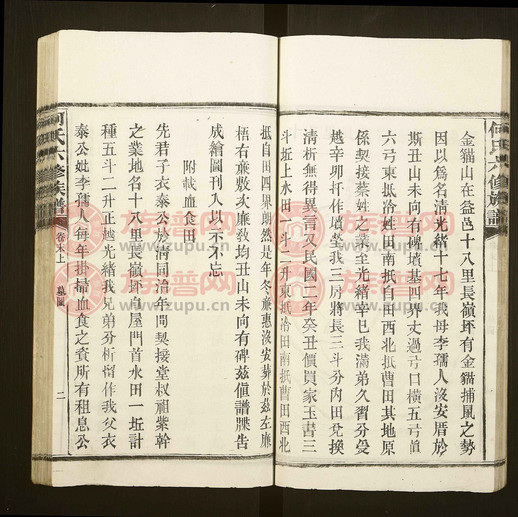 何氏六修族譜
金貓山在益邑十八里長嶺坏有金貓捕鳳之勢
因以爲名淸光緒十七年我母李孺人沒安厝於
斯丑山未向有碑墳基四界丈過弓口橫五弓眞
六弓東抵冷姓田南抵自田西北抵曹田其地原
係契接蔡姓之業至光緒辛巳我滿弟久習分受
越辛卯抒作墳塋我三房將長三斗分內田兌換
淸析無得異言又民國二年癸丑價買家玉書三
斗坵上水田一斗二升東抵冷田南抵曹田西北
抵自田四界朗然是年冬蕙聽沒安葬於茲左廉
梧右蕙敷次蕙敏敬均丑山未向有碑茲値譜牒告
成繪圖刊入以示不忘
附載血食田
先君子衣泰公於淸同治年間契接堂叔祖紫幹
之業地名十八里長嶺坏自屋門首水田一坵計
種五斗二升正越光緒我兄弟分析留作我父衣
泰公妣李孺人每年掛掃血食之資所有租息公
何氏六修族譜
卷末上
墓圖
二
族譜网
www.zupu.cn